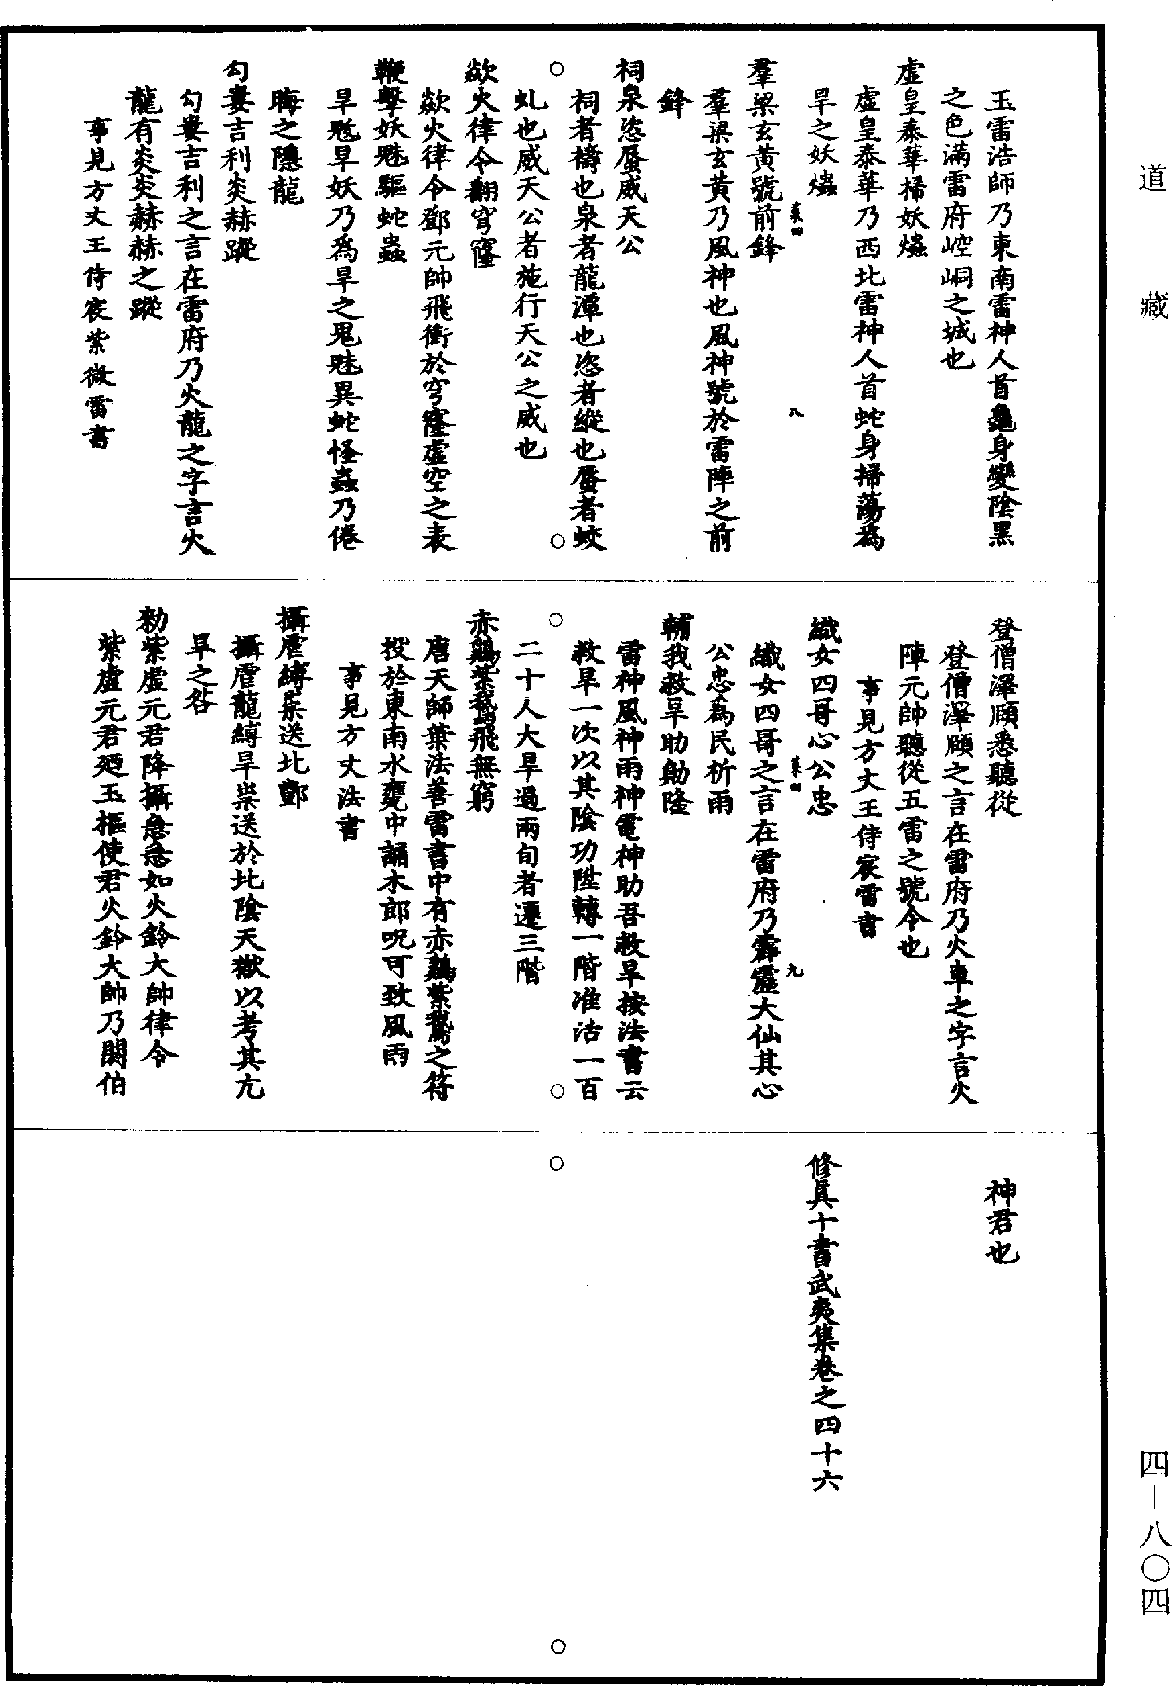 道藏
玉雷浩師乃東南雷神人首龜身變陰黑
之色滿雷府崆峒之城也
虛皇泰華掃妖爞
虛皇泰華乃西北雷神人首蛇身掃蕩為
旱之妖爞
八
羣梁玄黃號前鋒
羣梁玄黃乃風神也風神號於雷陣之前
鋒
祠泉恣蜃威天公
祠者禱也泉者龍潭也恣者縱也蜃者蛟
虬也威天公者施行天公之威也
歘火律令翻穹窿
歘火律令鄧元帥飛衝於穹窿虛空之表
鞭擊妖魅驅蛇蟲
旱魃旱妖乃為旱之鬼魅異蛇怪蟲乃倦
晦之隱龍
勾婁吉利炎赫蹤
勾婁吉利之言在雷府乃火龍之字言火
龍有炎炎赫赫之蹤
事見方丈王侍宸紫微雷書
登僧澤願悉聽從
登僧澤願之言在雷府乃火車之字言火
陣元帥聽從五雷之號令也
事見方丈王侍宸雷書
九
織女四哥心公忠
織女四哥之言在雷府乃霹靂大仙其心
公忠為民祈雨
輔我救旱助勛隆
雷神風神雨神電神助吾救旱按法書云
救旱一次以其陰功陞轉一階准活一百
二十人大旱過兩旬者遷三階
赤鷄紫鵞飛無窮
唐天師葉法善雷書中有赤鷄紫鵞之符
投於東南水甕中誦木郎呪可致風雨
事見方丈法書
攝虐縛祟送北酆
攝虐龍縛旱祟送於北陰天獄以考其亢
旱之咎
勑紫虛元君降攝急急如火鈴大帥律令
紫虛元君廼玉樞使君火鈴大帥乃閼伯
神君也
修真十書武夷集卷之四十六
四－八〇四